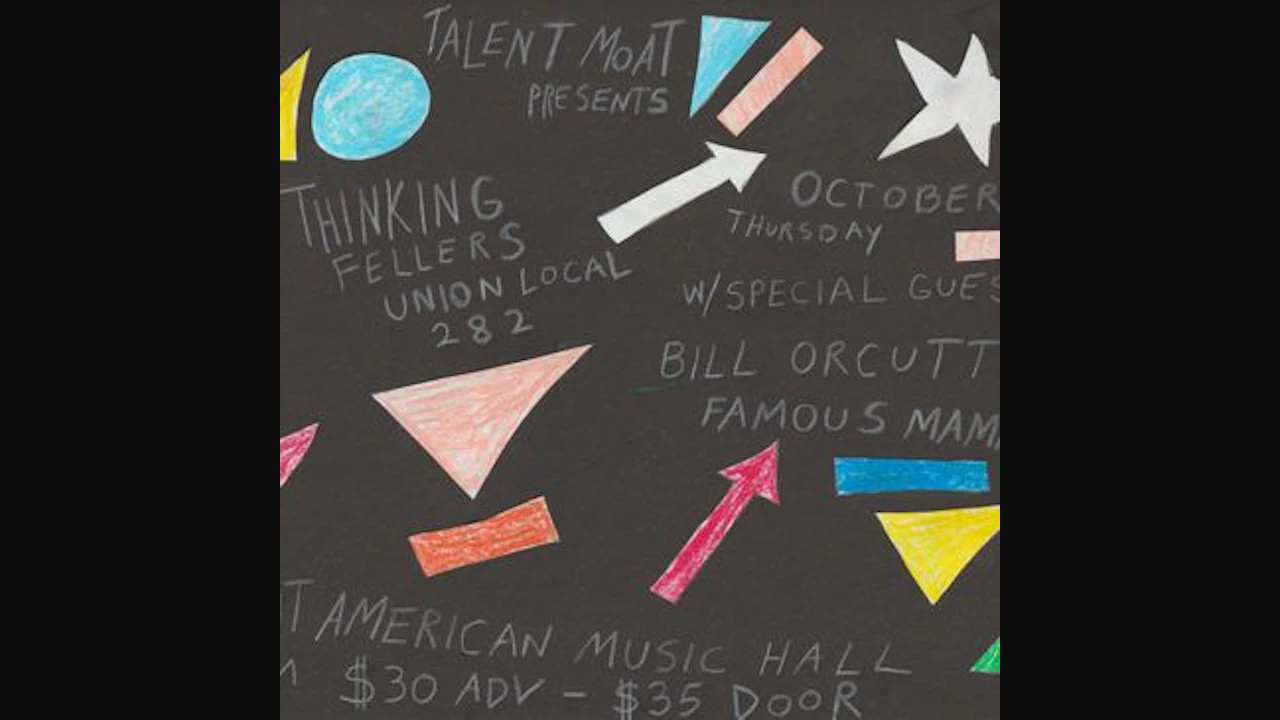 TALENT MOAT
PRESENTS
THINKING
FELLERS
UNION LOCAL
282
OCTOBER
THURSDAY
W/SPECIAL GUES
BILL ORCUTT
FAMOUS MAM
T AMERICAN MUSIC HALL
$30 ADV - $35 DOOR